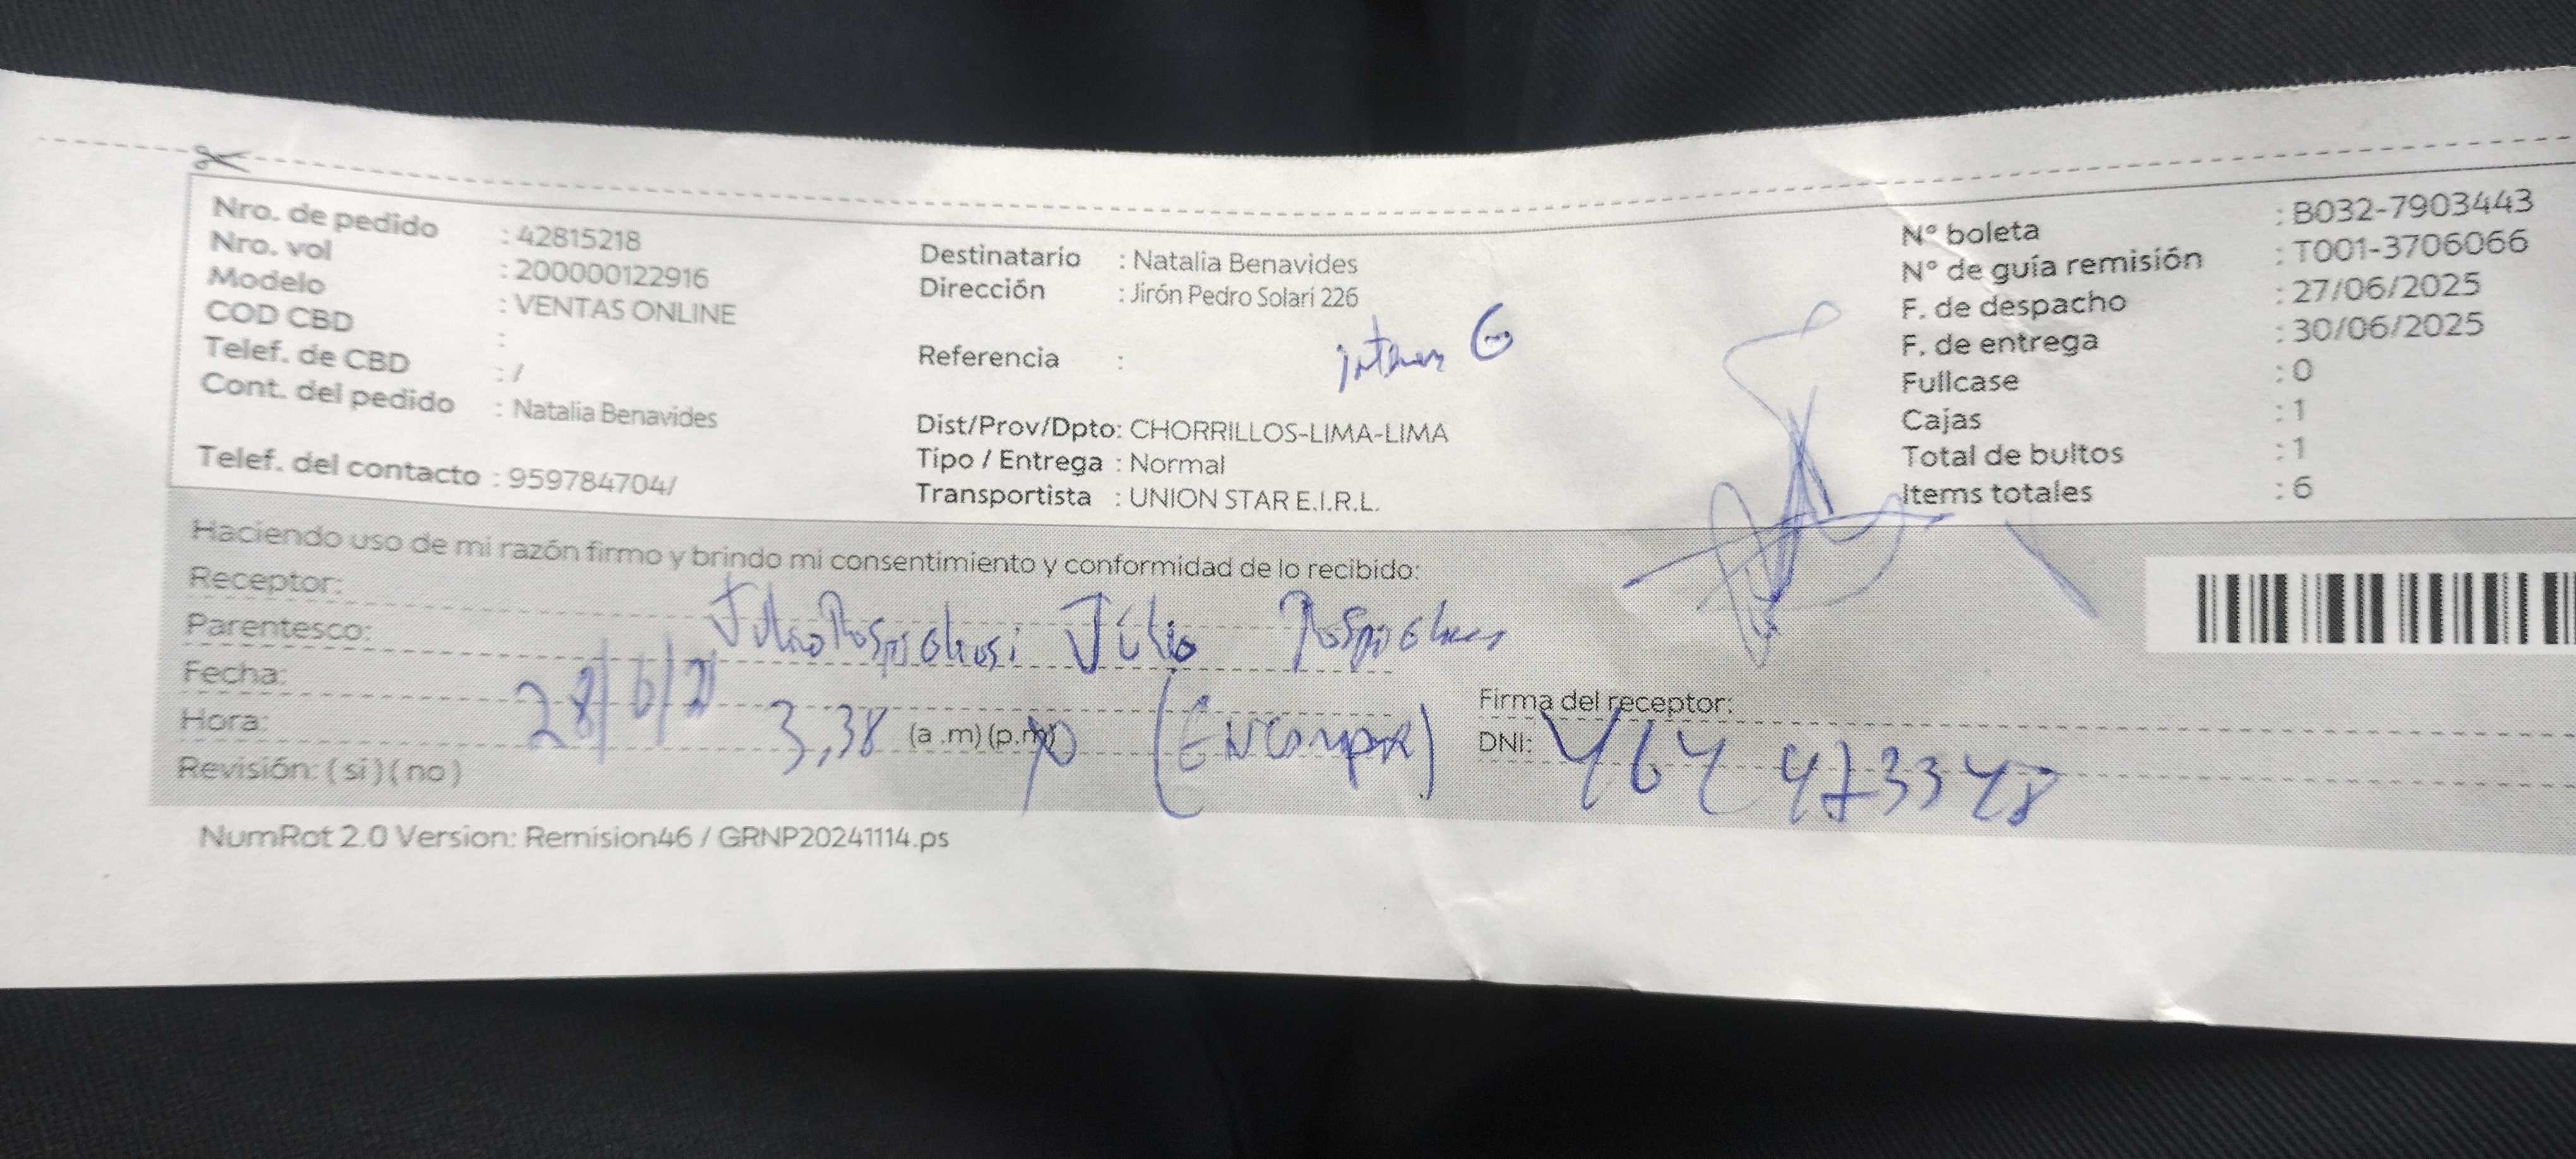 Nro. de pedido : 42815218
Nro. vol : 200000122916
Modelo : VENTAS ONLINE
COD CBD :
Telef. de CBD : /
Cont. del pedido : Natalia Benavides
Telef. del contacto : 959784704/
Destinatario : Natalia Benavides
Dirección : Jirón Pedro Solari 226
Referencia :
Dist/Prov/Dpto: CHORRILLOS-LIMA-LIMA
Tipo / Entrega : Normal
Transportista : UNION STAR E.I.R.L.
N° boleta : B032-7903443
N° de guía remisión : T001-3706066
F. de despacho : 27/06/2025
F. de entrega : 30/06/2025
Fullcase : 0
Cajas : 1
Total de bultos : 1
Items totales : 6
Haciendo uso de mi razón firmo y brindo mi consentimiento y conformidad de lo recibido:
Receptor:
Parentesco: Julio
Fecha: 28/6/
Hora: 3,38 (a .m) (p.m)
Revisión: ( si ) ( no )
Firma del receptor:
DNI:
NumRot 2.0 Version: Remision46 / GRNP20241114.ps